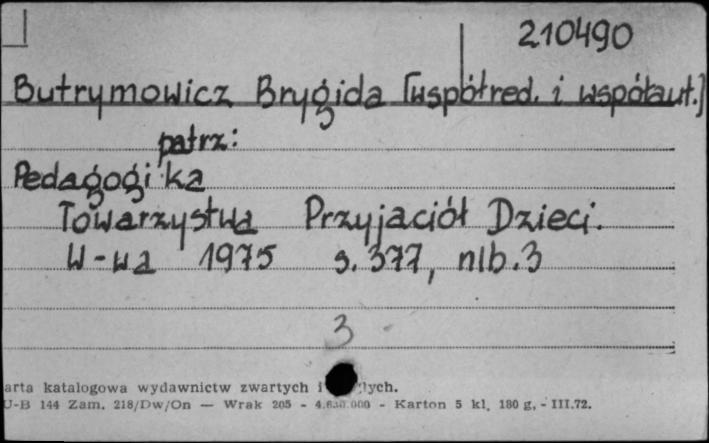 210490
Butrymowicz Brygida [współred. i współaut.]
patrz:
Pedagogika
Towarzystwa Przyjaciół Dzieci.
W-wa 1975 s. 377, nlb. 3
3
arta katalogowa wydawnictw zwartych i
U-B 144 Zam. 218/Dw/On — Wrak 205 - 4.630.000 - Karton 5 kl. 180 g, - III.72.